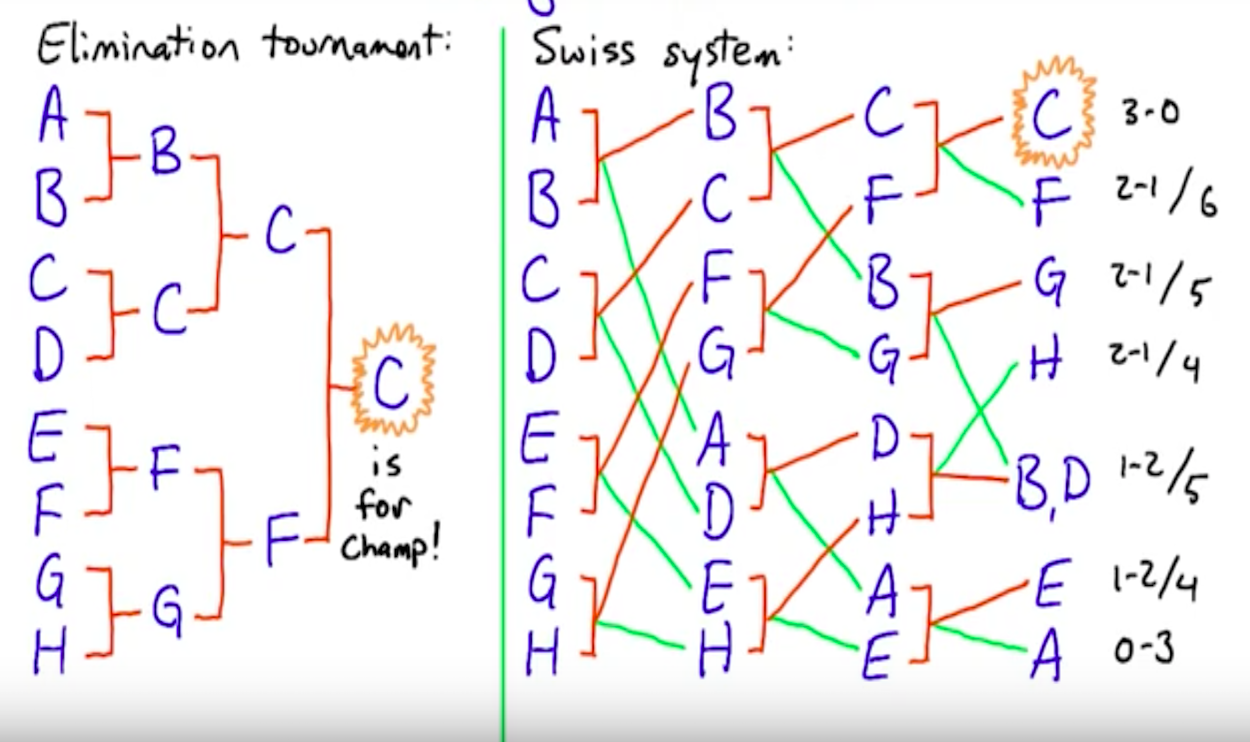 Elimination tournament:
A
B
C
D
E
F
G
H
B
C
F
G
C
F
C
is
for
Champ!
Swiss system:
A
B
C
D
E
F
G
H
B
C
F
G
A
D
E
H
C
F
B
G
D
H
A
E
C 3-0
F 2-1/6
G 2-1/5
H 2-1/4
B,D 1-2/5
E 1-2/4
A 0-3